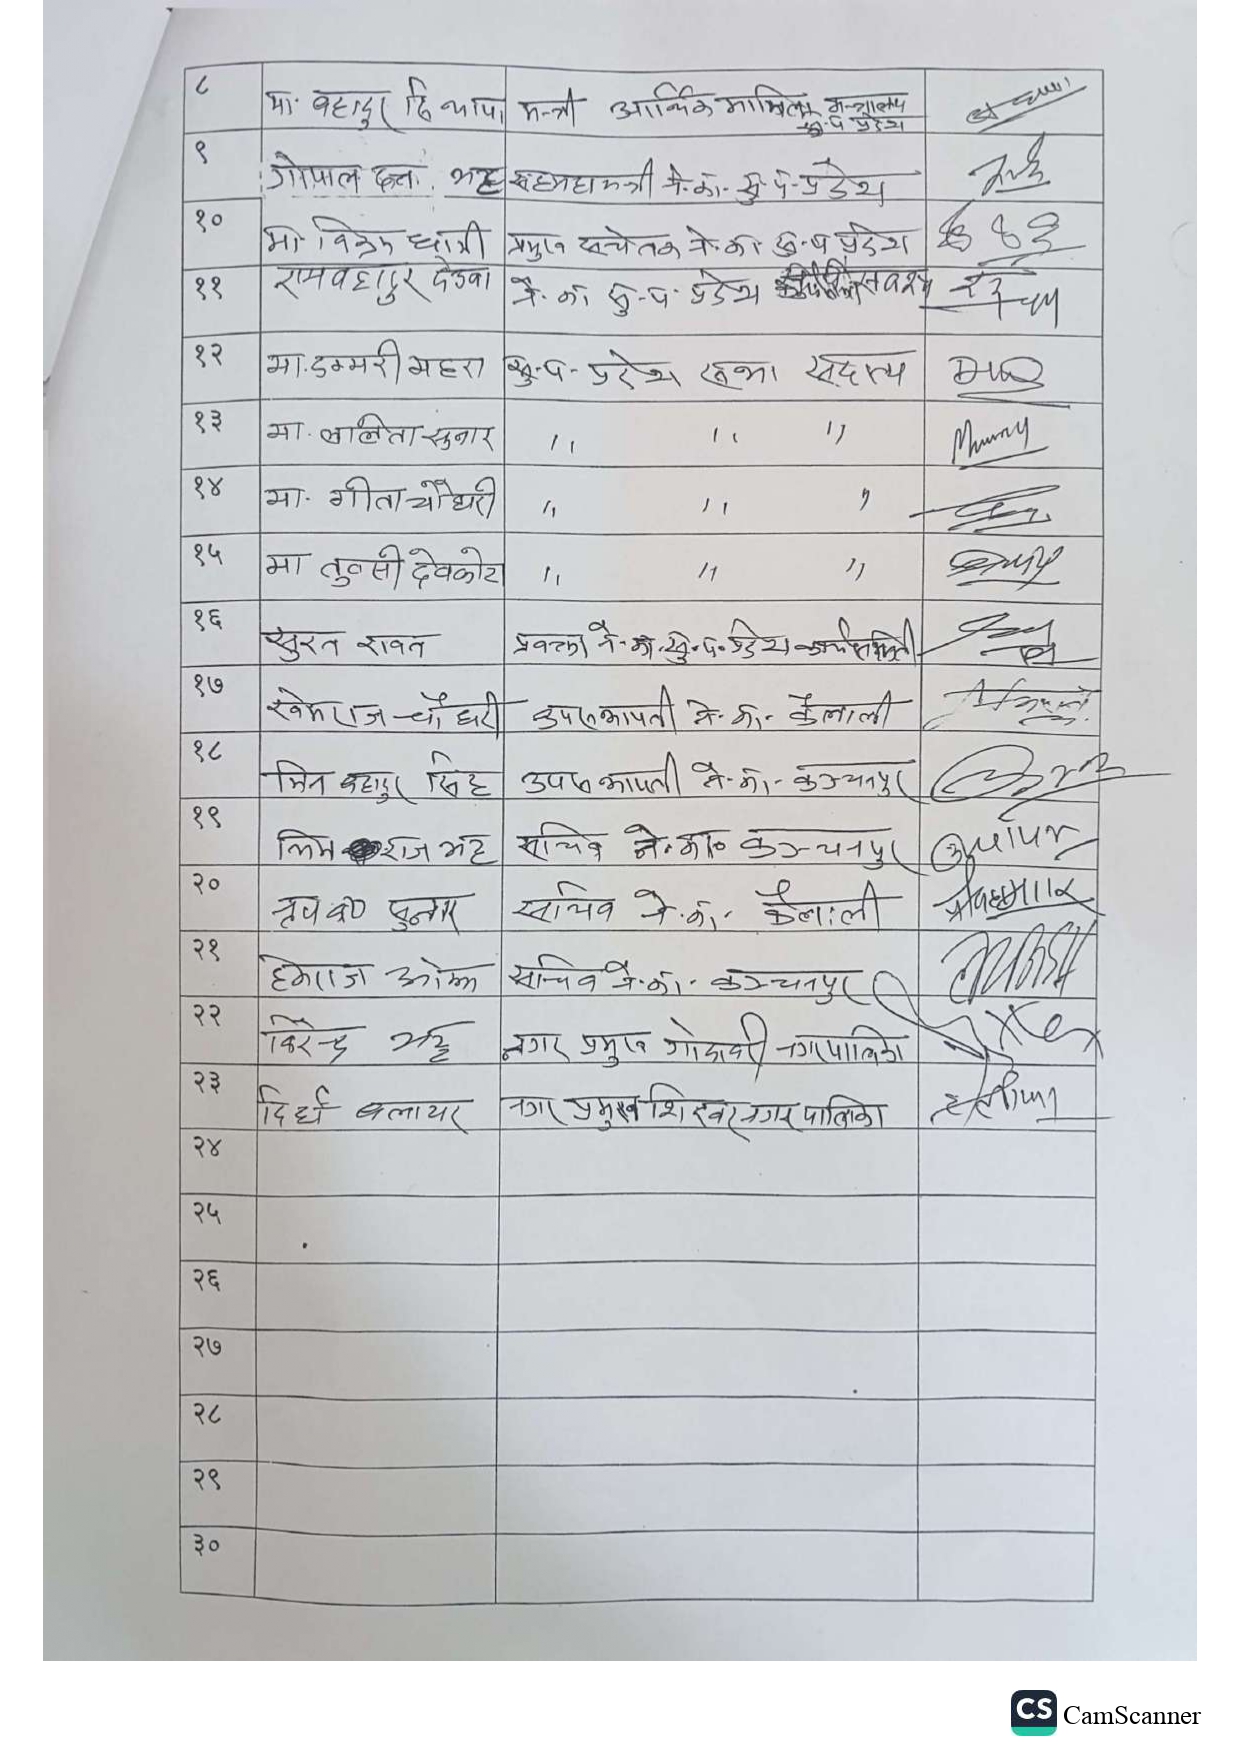 ८ मा. बहादुर सिं थापा मन्त्री आर्थिक मामिला मन्त्रालय
सु.प प्रदेश
९ गोपाल दत्त भट्ट सहमहामन्त्री ने.का. सु.प. प्रदेश
१० मा. विक्रम धामी प्रमुख सचेतक ने.का सु.प प्रदेश
११ रामबहादुर देउवा ने.का सु.प. प्रदेश
१२ मा. डम्मरी महरा सु.प. प्रदेश सभा सदस्य
१३ मा. ललिता सुनार " " "
१४ मा. गीता चौधरी " " "
१५ मा तुलसी देवकोटा " " "
१६ सुरत रावत प्रवक्ता ने.का.सु.प.प्रदेश कार्यसमिति
१७ खेमराज चौधरी उपसभापती ने.का. कैलाली
१८ मिन बहादुर सिंह उपसभापती ने.का. कञ्चनपुर
१९ राज भट्ट सचिव ने.का. कञ्चनपुर
२० सचिव ने.का. कैलाली
२१ हेमराज ओझा सचिव ने.का. कञ्चनपुर
२२ विरेन्द्र भट्ट नगर प्रमुख गोदावरी नगरपालिका
२३ दिर्घ बलायर नगर प्रमुख शिखर नगरपालिका
२४
२५
२६
२७
२८
२९
३०
CS CamScanner